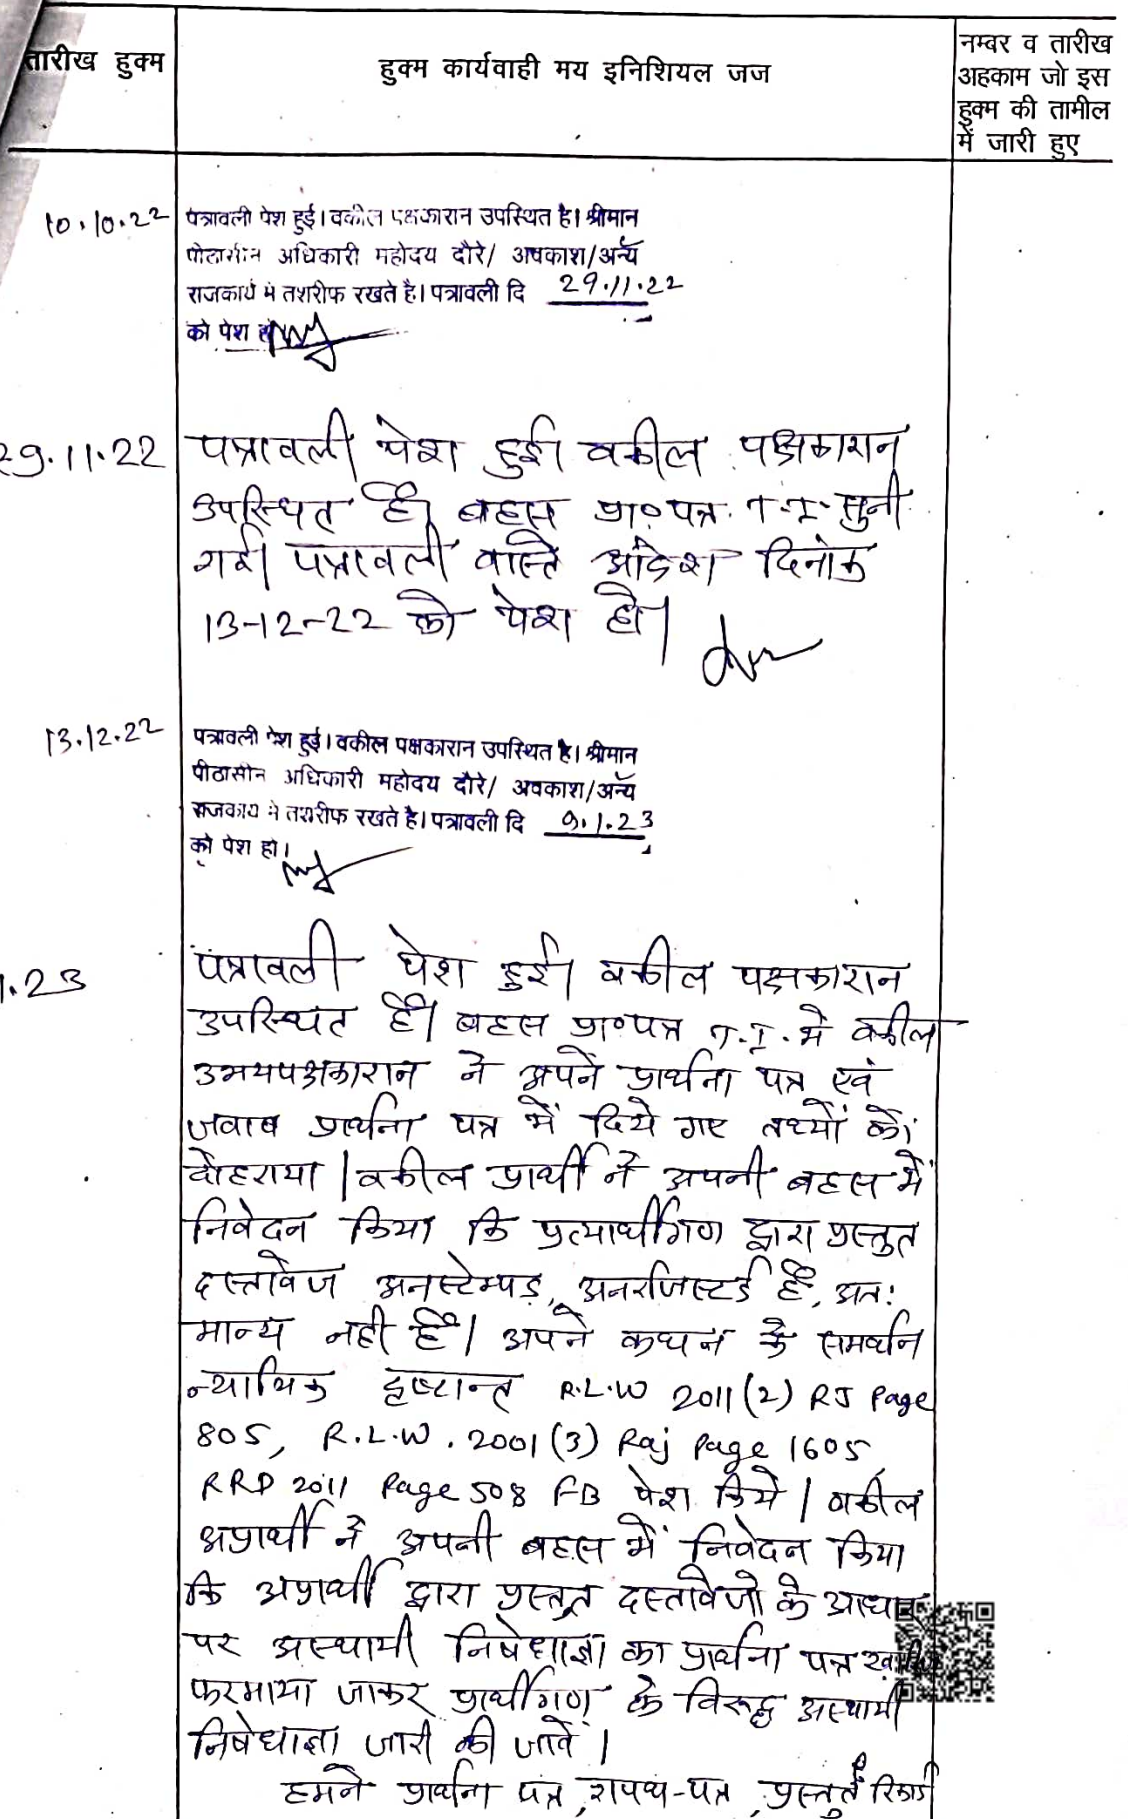 तारीख हुक्म
हुक्म कार्यवाही मय इनिशियल जज
नम्बर व तारीख
अहकाम जो इस
हुक्म की तामील
में जारी हुए
10.10.22
पत्रावली पेश हुई। वकील पक्षकारान उपस्थित है। श्रीमान
पीठासीन अधिकारी महोदय दौरे/ अवकाश/अन्य
राजकार्य में तशरीफ रखते है। पत्रावली दि 29.11.22
को पेश हो
29.11.22
पत्रावली पेश हुई। वकील पक्षकारान
उपस्थित है। बहस प्रा०पत्र T.I. सुनी
गई। पत्रावली वास्ते आदेश दिनांक
13-12-22 को पेश हो।
13.12.22
पत्रावली पेश हुई। वकील पक्षकारान उपस्थित है। श्रीमान
पीठासीन अधिकारी महोदय दौरे/ अवकाश/अन्य
राजकार्य में तशरीफ रखते है। पत्रावली दि 9.1.23
को पेश हो।
1.23
पत्रावली पेश हुई। वकील पक्षकारान
उपस्थित हैं। बहस प्रा०पत्र T.I. में वकील
उभयपक्षकारान ने अपने प्रार्थना पत्र एवं
जवाब प्रार्थना पत्र में दिये गए तथ्यों को
दोहराया। वकील प्रार्थी ने अपनी बहस में
निवेदन किया कि प्रत्यार्थीगण द्वारा प्रस्तुत
दस्तावेज अनस्टेम्पड, अनरजिस्टर्ड हैं, अत:
मान्य नही हैं। अपने कथन के समर्थन
न्यायिक दृष्टान्त R.L.W 2011(2) RJ Page
805, R.L.W. 2001(3) Raj Page 1605,
RRD 2011 Page 508 FB पेश किये। वकील
अप्रार्थी ने अपनी बहस में निवेदन किया
कि अप्रार्थी द्वारा प्रस्तुत दस्तावेजो के आधार
पर अस्थायी निषेधाज्ञा का प्रार्थना पत्र
फरमाया जाकर प्रार्थीगण के विरूद्ध अस्थायी
निषेधाज्ञा जारी की जावें।
हमने प्रार्थना पत्र, शपथ-पत्र, प्रस्तुत रिकार्ड